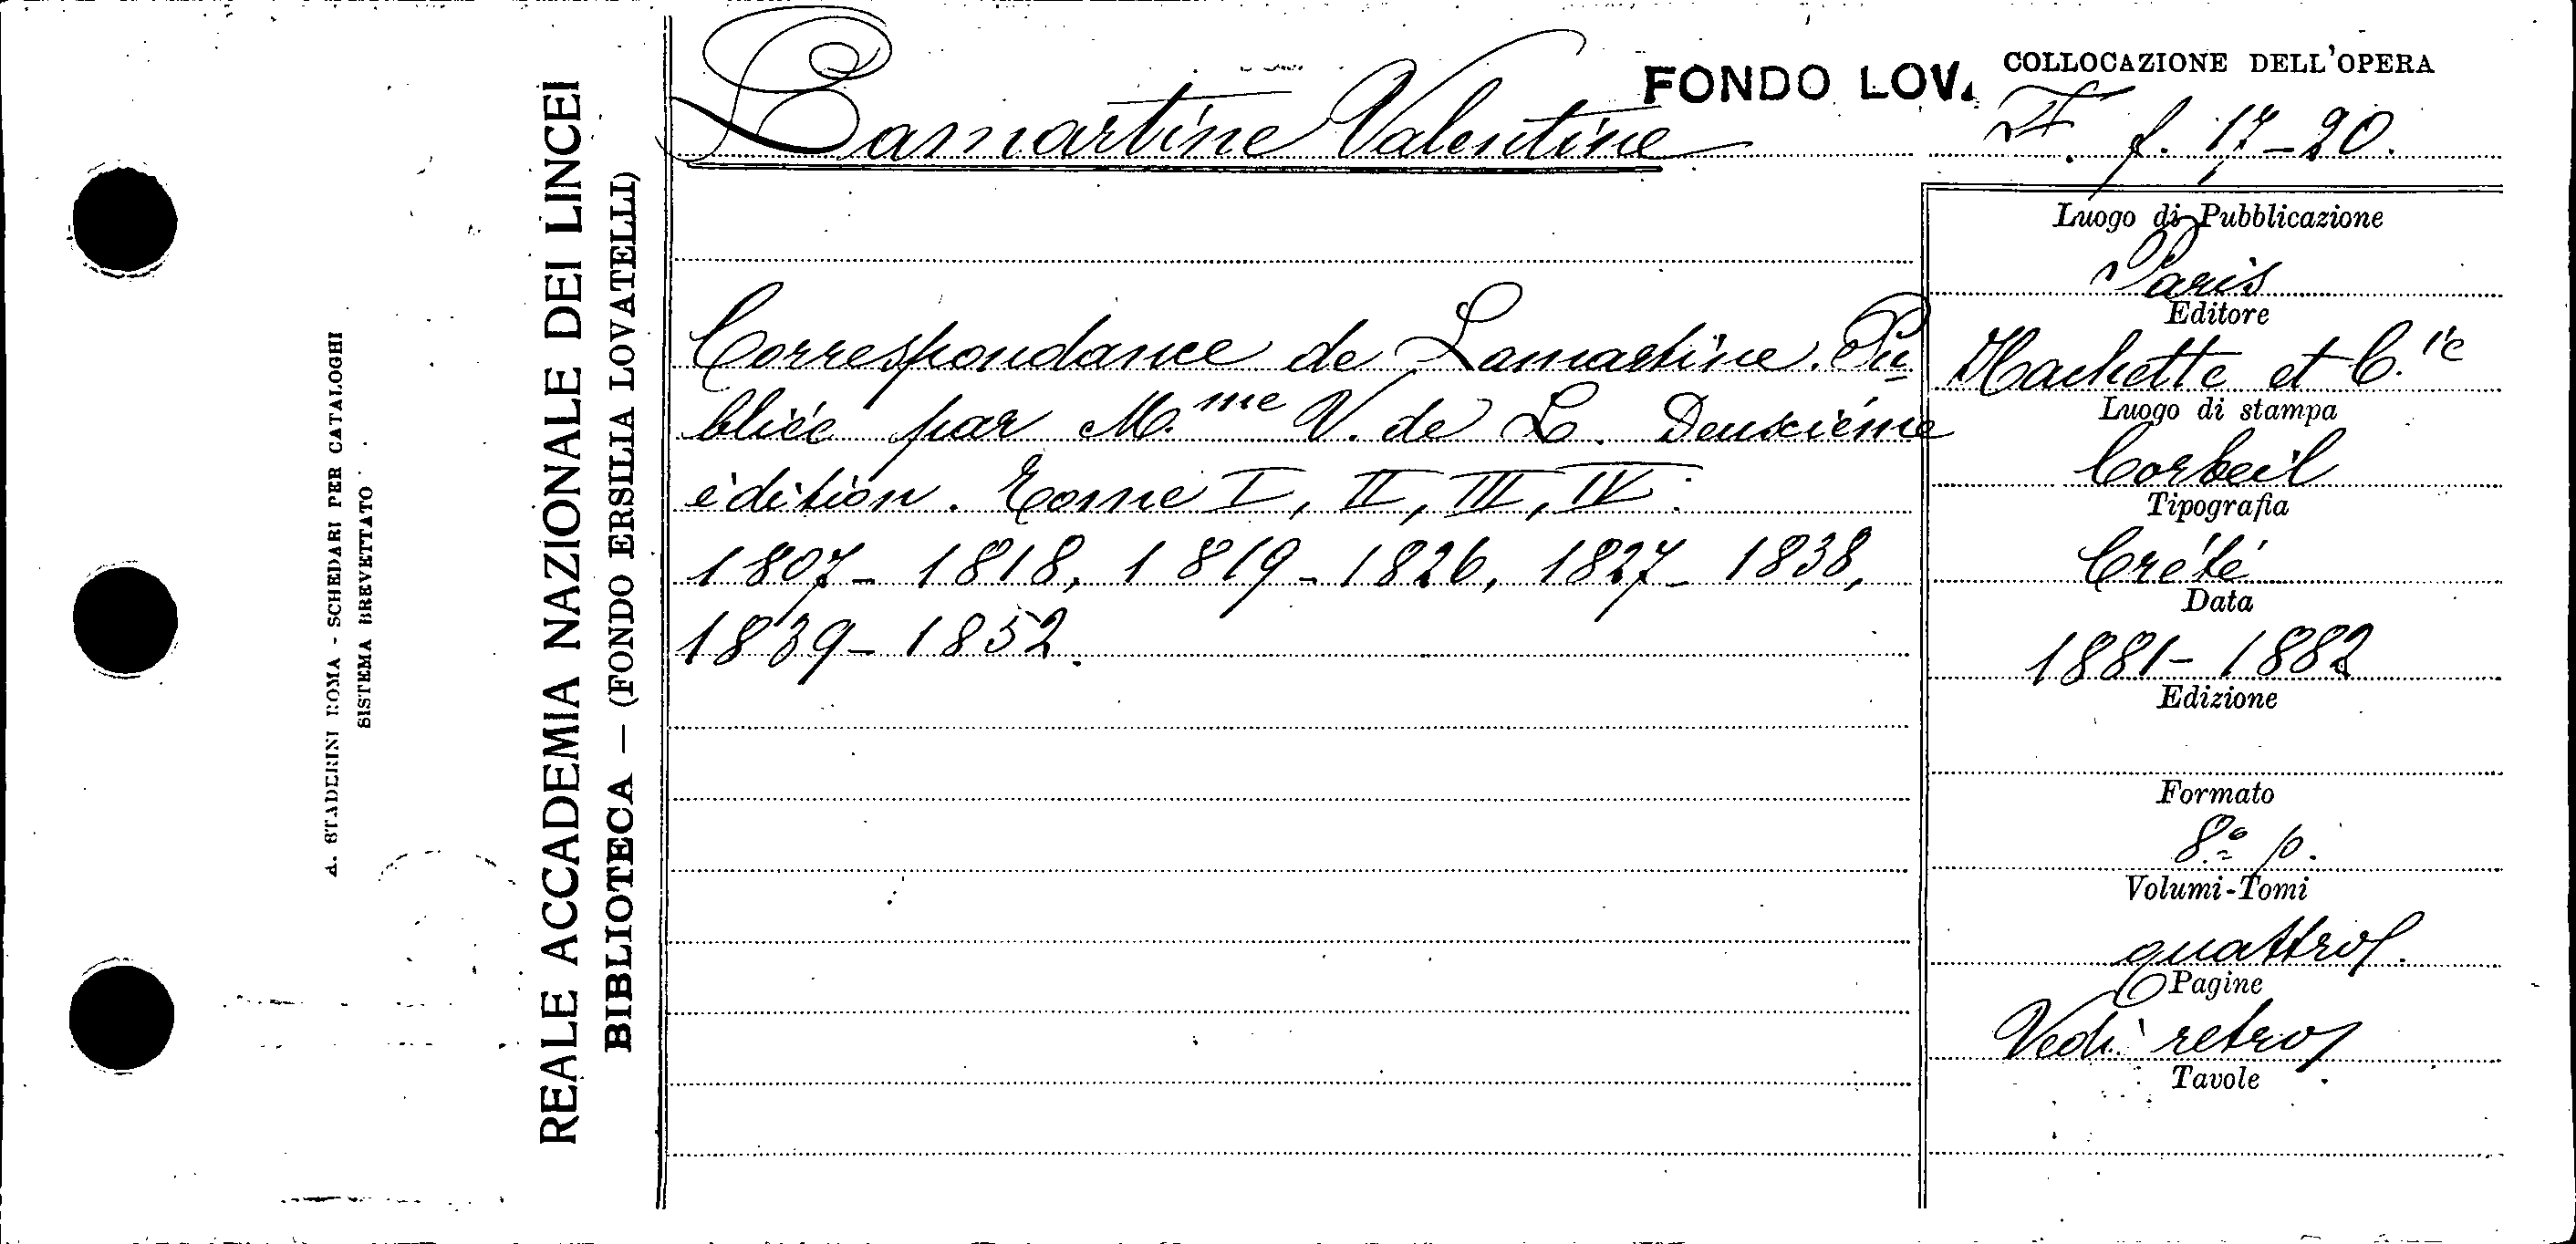 A. STADERINI ROMA - SCHEDARI PER CATALOGHI
SISTEMA BREVETTATO
REALE ACCADEMIA NAZIONALE DEI LINCEI
BIBLIOTECA — (FONDO ERSILIA LOVATELLI)
Lamartine Valentine
FONDO LOV.
Correspondance de Lamartine. Pu-
bliée par M.me V. de L. Deuxième
édition. Tome I, II, III, IV.
1807 - 1818, 1819 - 1826, 1827 - 1838,
1839 - 1852.
COLLOCAZIONE DELL'OPERA
F. f. 17-20.
Luogo di Pubblicazione
Paris
Editore
Hachette et C.ie
Luogo di stampa
Corbeil
Tipografia
Crété
Data
1881 - 1882
Edizione
Formato
8º p.
Volumi-Tomi
quattro.
Pagine
Vedi retro
Tavole